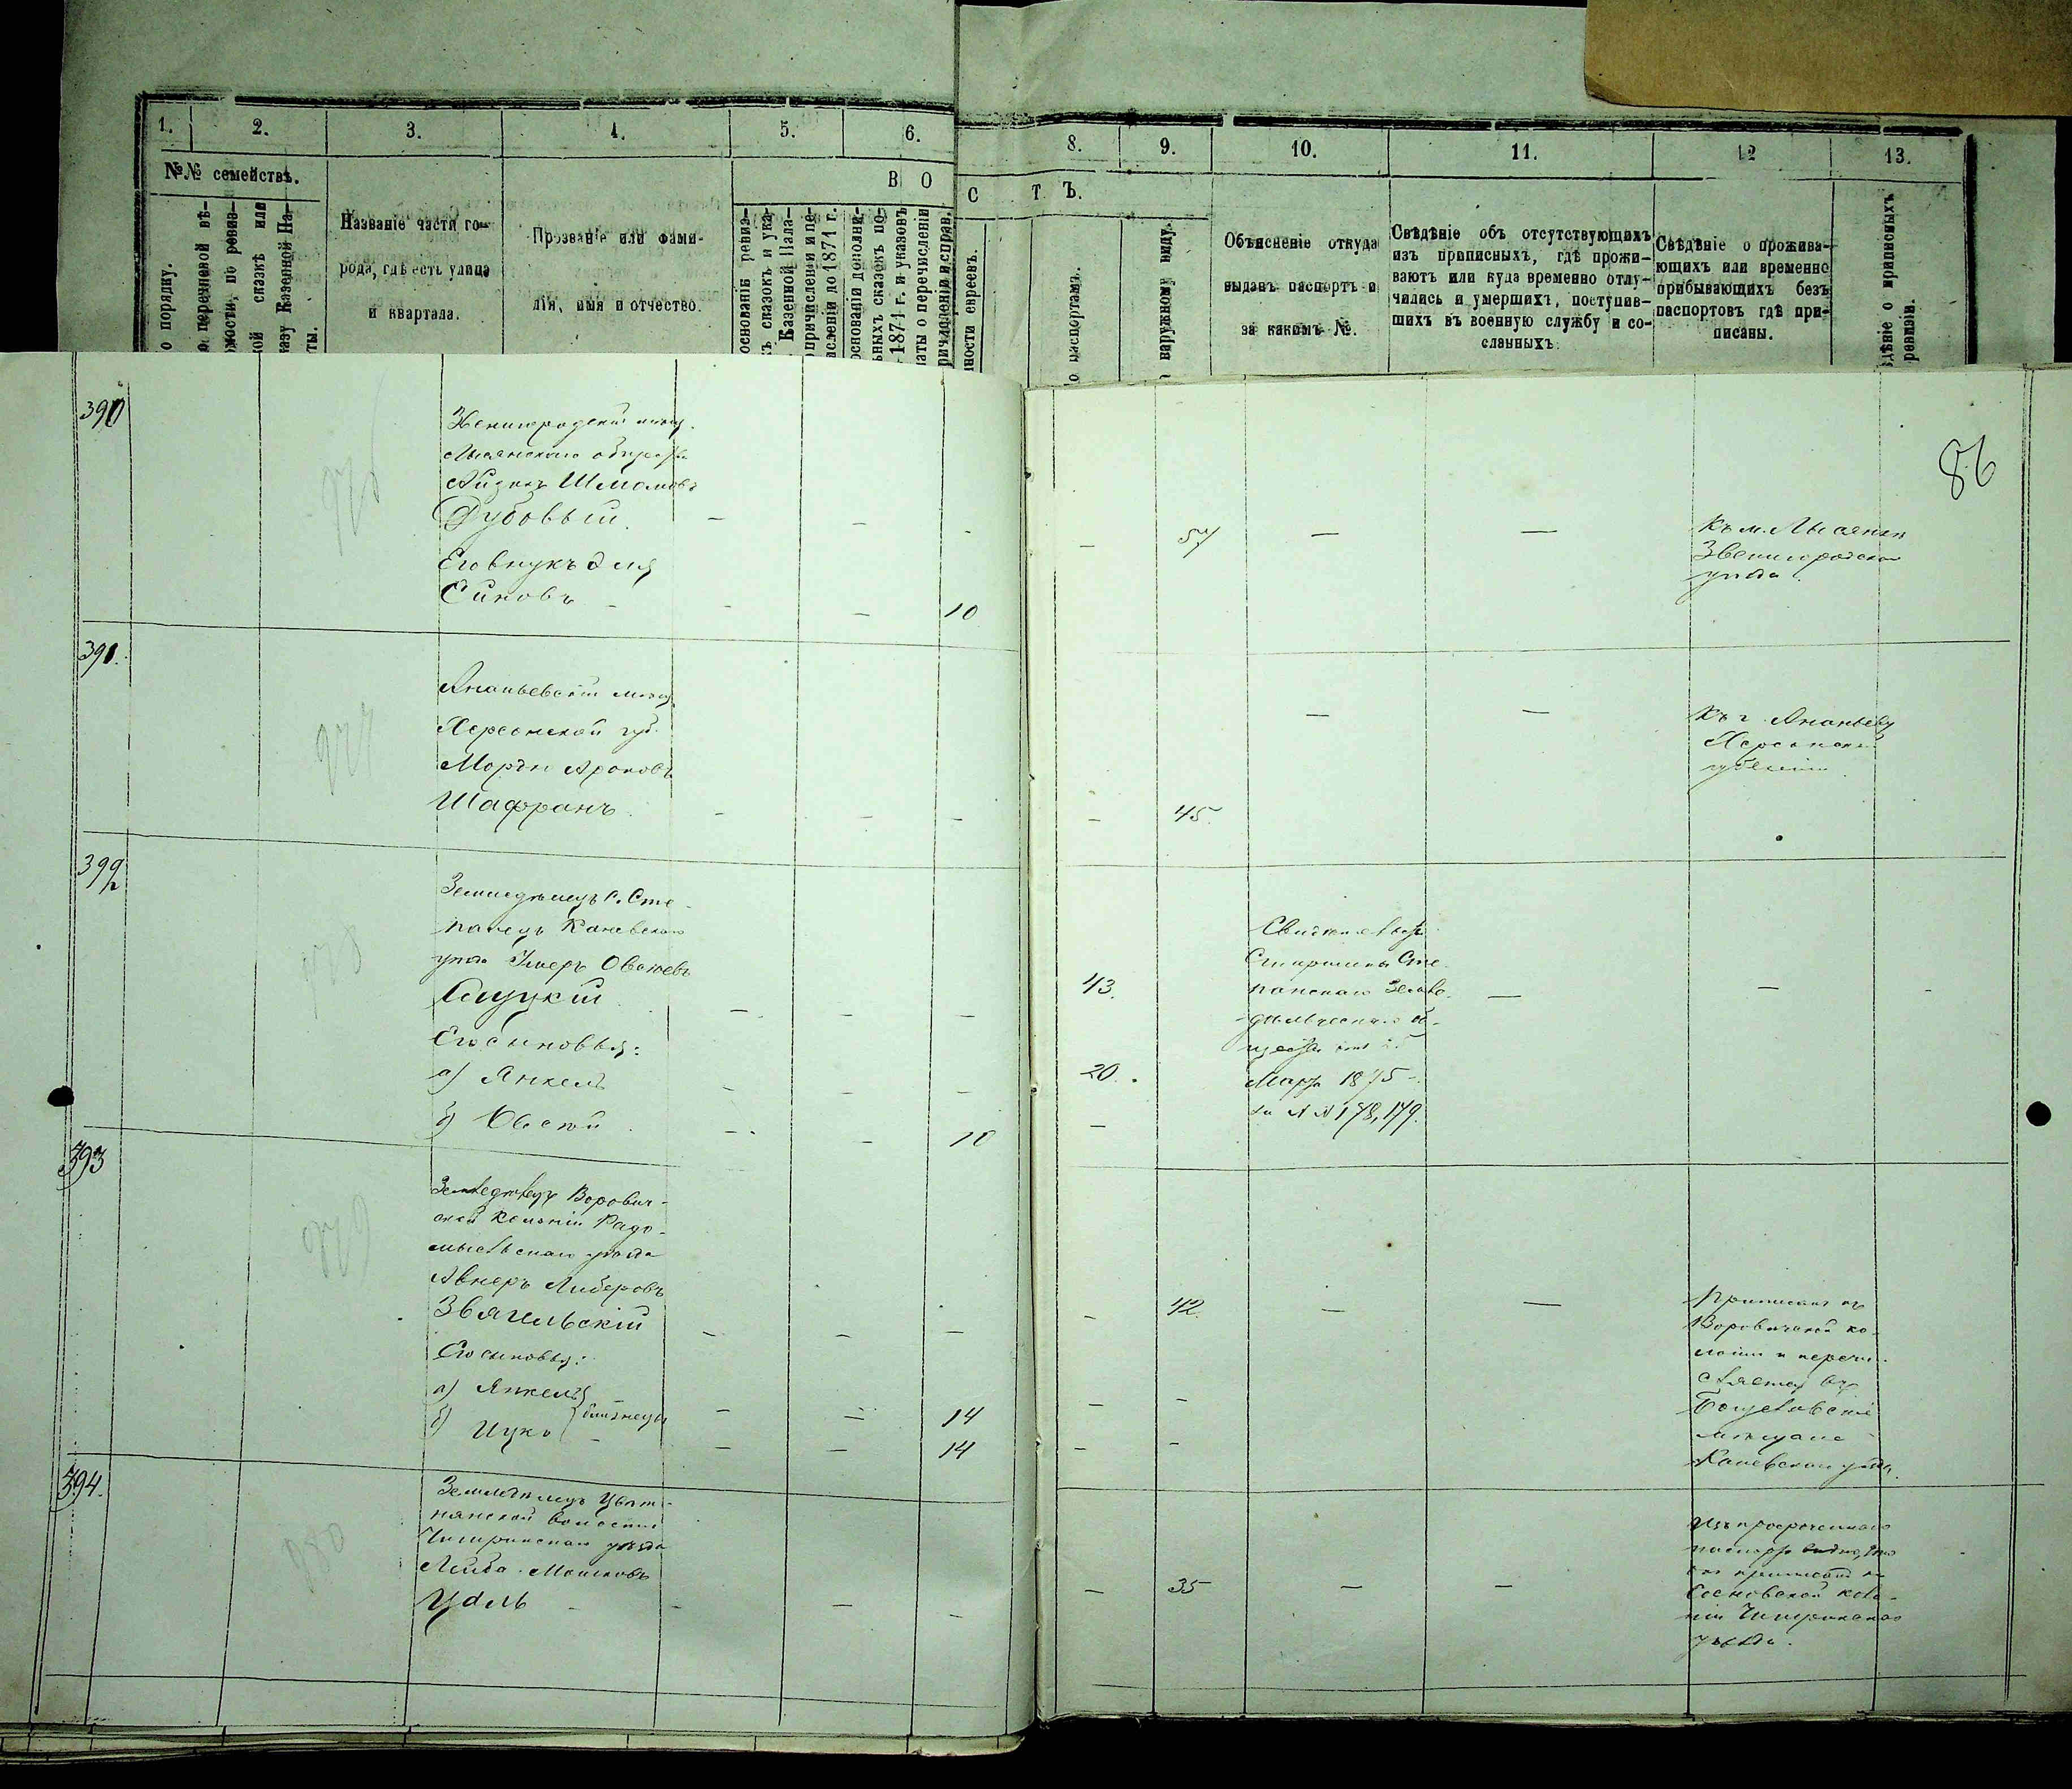 1. 2. 3. 4. 5. 6. 8. 9. 10. 11. 12 13.
№№ семействъ.
В О С Т Ъ.
о порядку.
о перечневой вѣ-
омости, по ревиз-
кой сказкѣ или
казу Казенной Па-
ты.
Названіе части го-
рода, гдѣ есть улица
и квартала.
Прозваніе или фами-
лія, имя и отчество.
основаніѣ ревиз-
хъ сказокъ и ука-
Казенной Пала-
причисленіи и пе-
исленіи до 1871 г.
основаніи дополни-
ьныхъ сказокъ по-
1871 г. и указовъ
латы о перечисленіи
ричисленіи и справ.
ности евреевъ.
о паспортамъ.
наружному виду.
Объясненіе откуда
выданъ паспортъ и
за какимъ №.
Свѣдѣніе объ отсутствующихъ
изъ приписныхъ, гдѣ прожи-
ваютъ или куда временно отлу-
чились и умершихъ, поступив-
шихъ въ военную службу и со-
сланныхъ.
Свѣдѣніе о прожива-
ющихъ или временно
прибывающихъ безъ
паспортовъ гдѣ при-
писаны.
дѣніе о приписныхъ
ревизіи.
86
390
976
Звенигородскій мѣщ.
Лысянскаго общества
Айзикъ Шмоловъ
Дубовый. - - - - 57 - -
Къ м. Лысянки
Звенигородскаго
уѣзда.
Его внукъ Элія
Сиковъ - - - 10
391.
977
Ананьевскій мѣщ.
Херсонской губ.
Моръ Ароновъ
Шафранъ. - - - - 45. - -
Къ г. Ананьеву
Херсонской
губерніи.
392
978
Земледѣлецъ с. Сте-
панецъ Каневскаго
уѣзда Овсіевъ
Слуцкій - - - 43. - - -
Его сыновья:
а) Янкель - - - 20.
б) Овсій - - 10 -
Старшины Сте-
панскаго Земле-
дѣльческаго об-
щества
Марта 1875
за №№ 178, 179.
393
979
Земледѣлецъ Борович-
ской колоніи Радо-
мысльскаго уѣзда
Авнеръ Либеровъ
Звягильскій - - - - 42. - -
Его сыновья:
а) Янкель - - 14 - -
б) Ицко } близнецы - - 14 - -
Приписанъ къ
Боровичской ко-
лоніи и перечи-
сляется въ
Богуславскіе
мѣщане
Каневскаго уѣзда.
394.
980
Земледѣлецъ Цвѣт-
нянской волости
Чигиринскаго уѣзда
Лейба Мошковъ
Удль - - - - 35 - -
Изъ просроченнаго
паспорта видно, что
онъ приписанъ къ
Сосновской коло-
ніи Чигиринскаго
уѣзда.